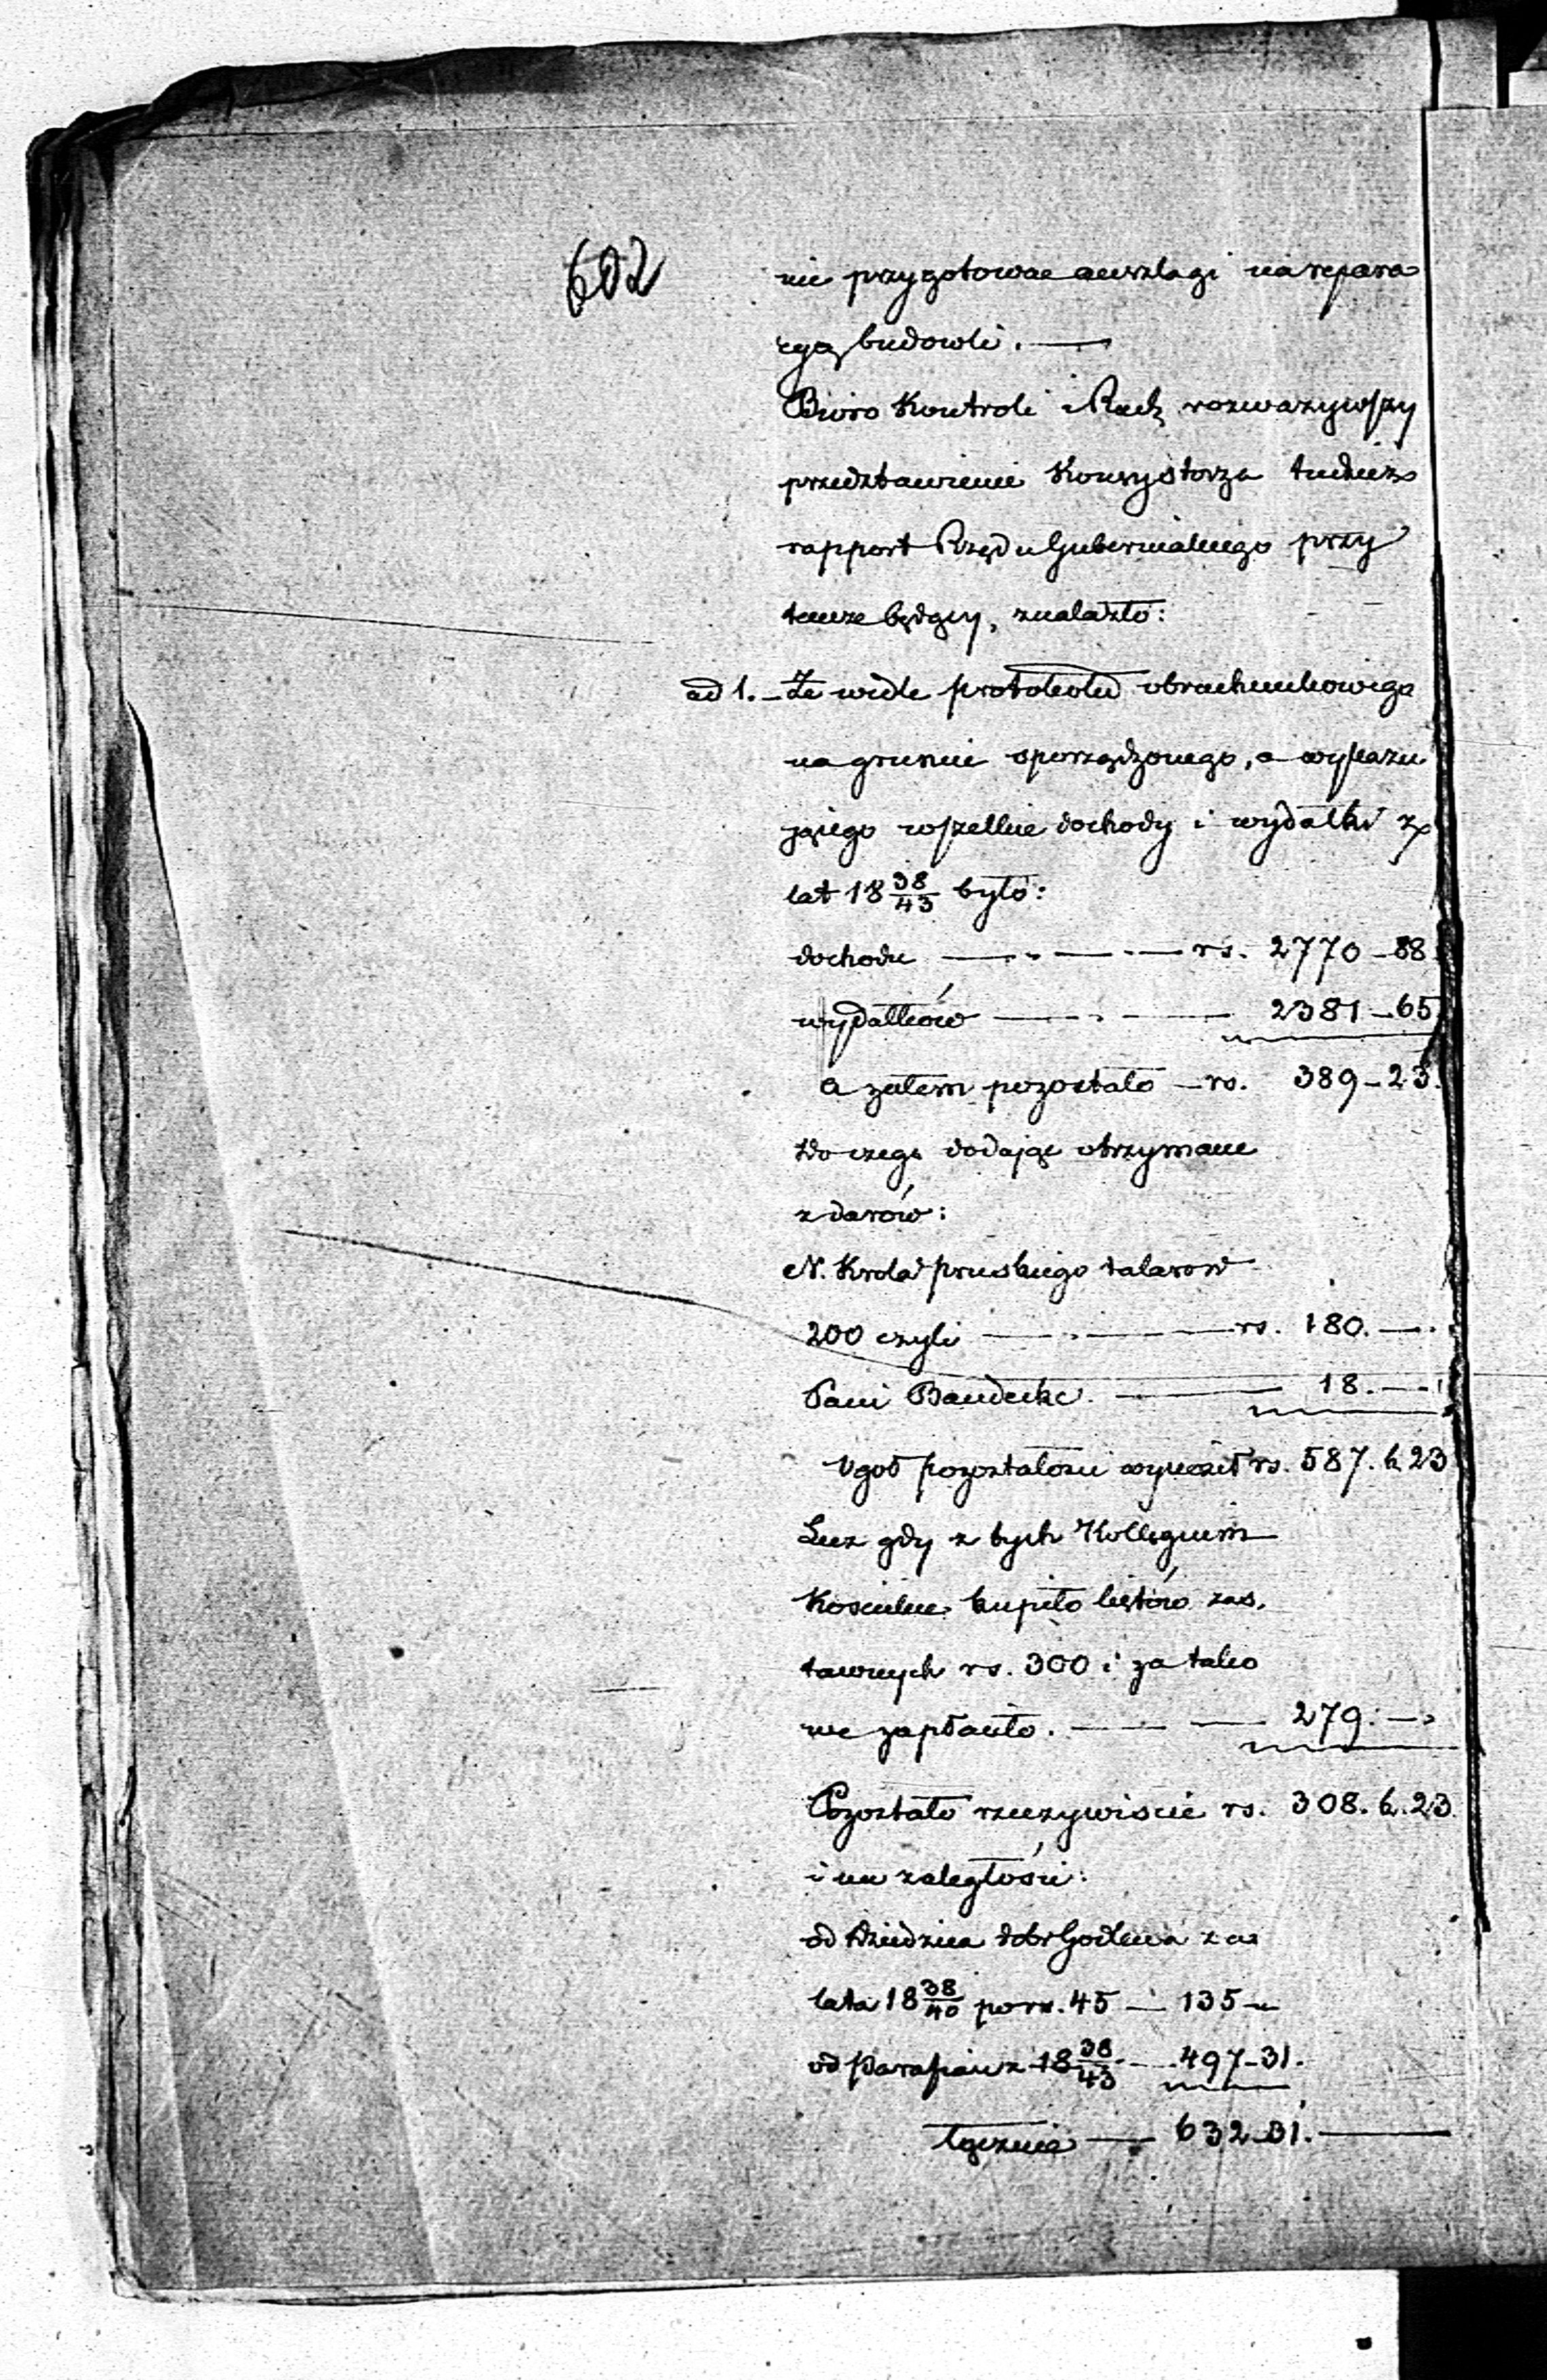 602
nie przygotowae anszlagi na repara
cyą budowli. —
Biuro Kontroli i Rach. rozważywszy
przedstawienie Konsystorza tudzież
rapport Rządu Gubernialnego przy
temże będący, znalazło:
ad 1. – Że wedle protokołu obrachunkowego
na gruncie sporządzonego, a wykazu
jącego wszelkie dochody i wydatki z
lat 18 38/43 było:
dochodu — rs. 2770 – 88
wydatków — 2381 – 65
a zatem pozostało – rs. 389 – 23.
Do czego dodając otrzymane
z darów:
N. Króla pruskiego talarow
200 czyli — rs. 180. —
Pani Bandtke. — 18. —
Ogół pozostałości wynosił rs. 587. k 23
Lecz gdy z tych Kollegium
Kościelne kupiło listów zas,
tawnych rs. 300 i za tako
we zapłaciło. — 279. —
Pozostało rzeczywiście rs. 308. k. 23.
i na zaległości:
od Dziedzica dobr Godlewa za
lata 18 38/40 po rs. 45 — 135 –
od Parafian z 18 38/43 — 497 – 31.
łącznie — 632 – 31. —